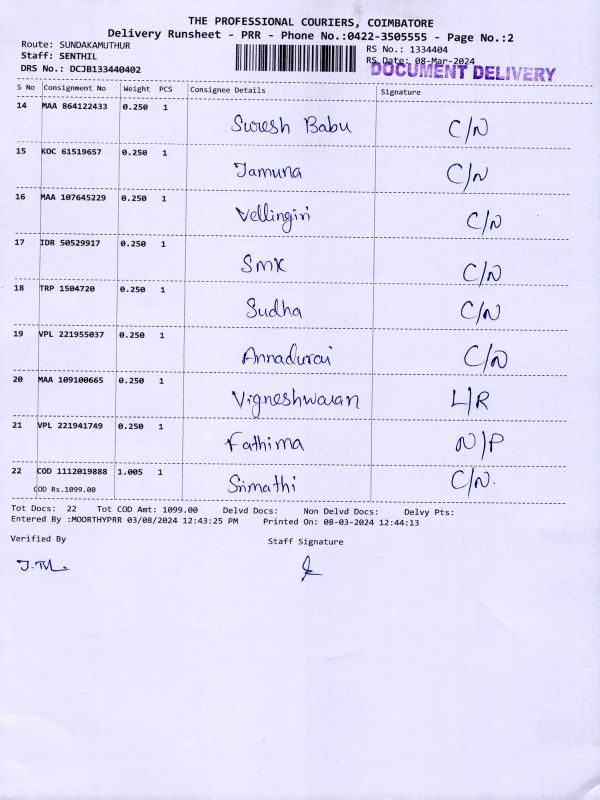 THE PROFESSIONAL COURIERS, COIMBATORE
Delivery Runsheet - PRR - Phone No.:0422-3505555 - Page No.:2
Route: SUNDAKAMUTHUR RS No.: 1334404
Staff: SENTHIL RS Date: 08-Mar-2024
DRS No.: DCJB133440402 DOCUMENT DELIVERY
S No Consignment No Weight PCS Consignee Details Signature
14 MAA 864122433 0.250 1 Suresh Babu C/N
15 KOC 61519657 0.250 1 Jamuna C/N
16 MAA 107645229 0.250 1 Vellingiri C/N
17 IDR 50529917 0.250 1 SMK C/N
18 TRP 1504720 0.250 1 Sudha C/N
19 VPL 221955037 0.250 1 Annadurai C/N
20 MAA 109100665 0.250 1 Vigneshwaran L/R
21 VPL 221941749 0.250 1 Fathima N/P
22 COD 1112019888 1.005 1 Srimathi C/N.
COD Rs.1099.00
Tot Docs: 22 Tot COD Amt: 1099.00 Delvd Docs: Non Delvd Docs: Delvy Pts:
Entered By :MOORTHYPRR 03/08/2024 12:43:25 PM Printed On: 08-03-2024 12:44:13
Verified By Staff Signature